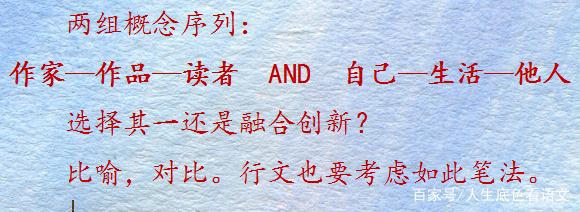 两组概念序列：
作家—作品—读者 AND 自己—生活—他人
选择其一还是融合创新？
比喻，对比。行文也要考虑如此笔法。
百家号/人生底色看语文